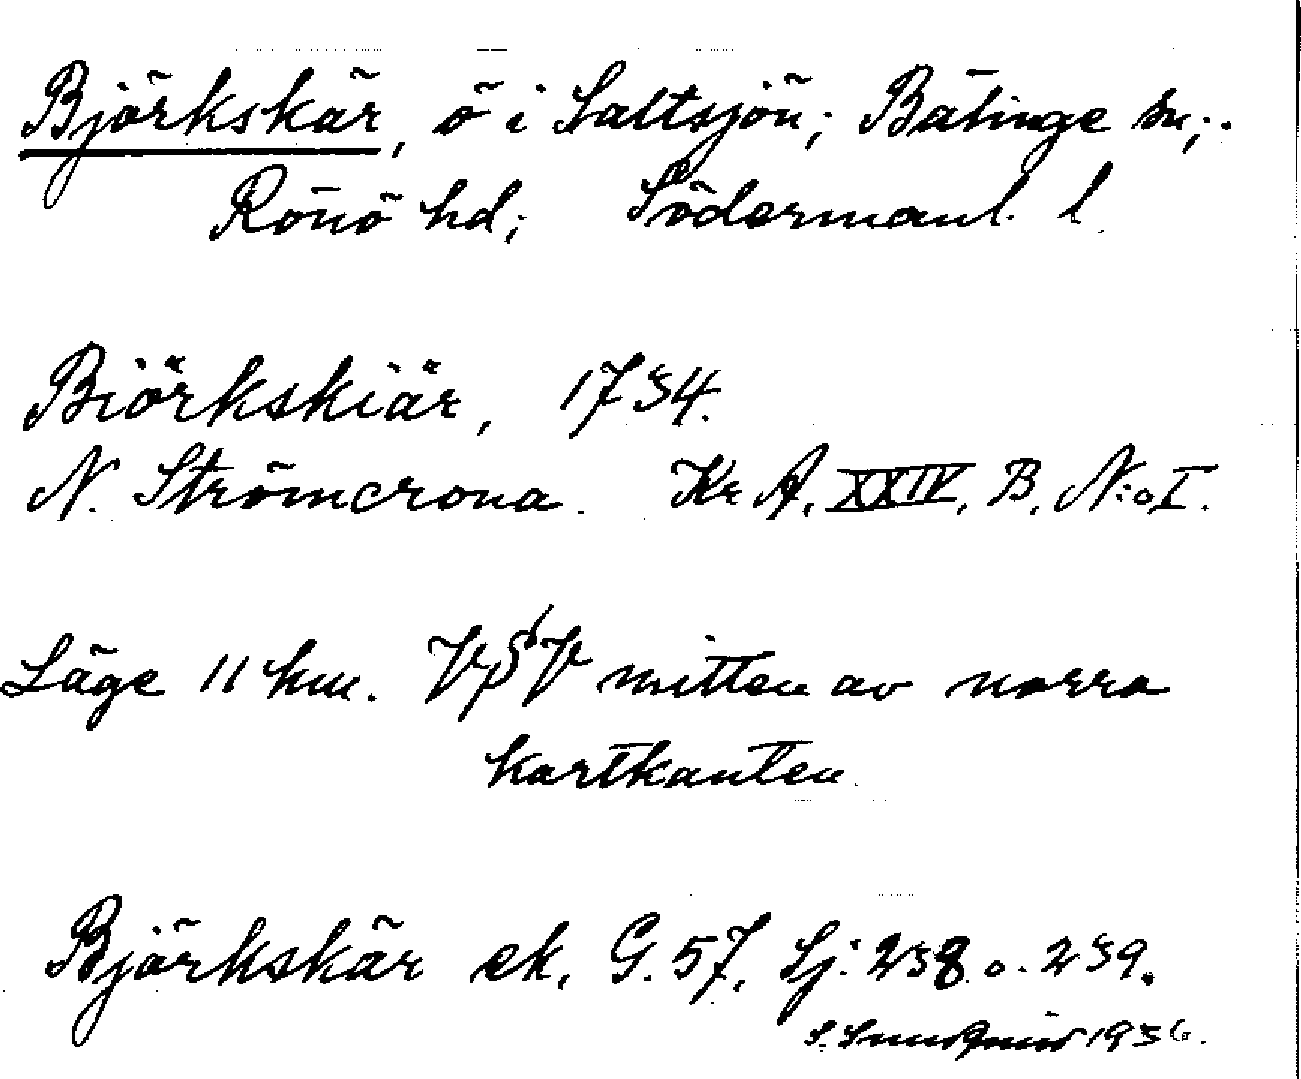 Björkskär, ö i Saltsjön; Bälinge sn;.
Rönö hd; Söderманl. l.
Biörkskiär, 1734.
N. Strömcrona. Kr A. XXIV. B. N:o I.
Läge 11 km. VSV mitten av norra
kartkanten.
Björkskär ek. G. 57. Sj: 238 o. 239.
S. 1936.